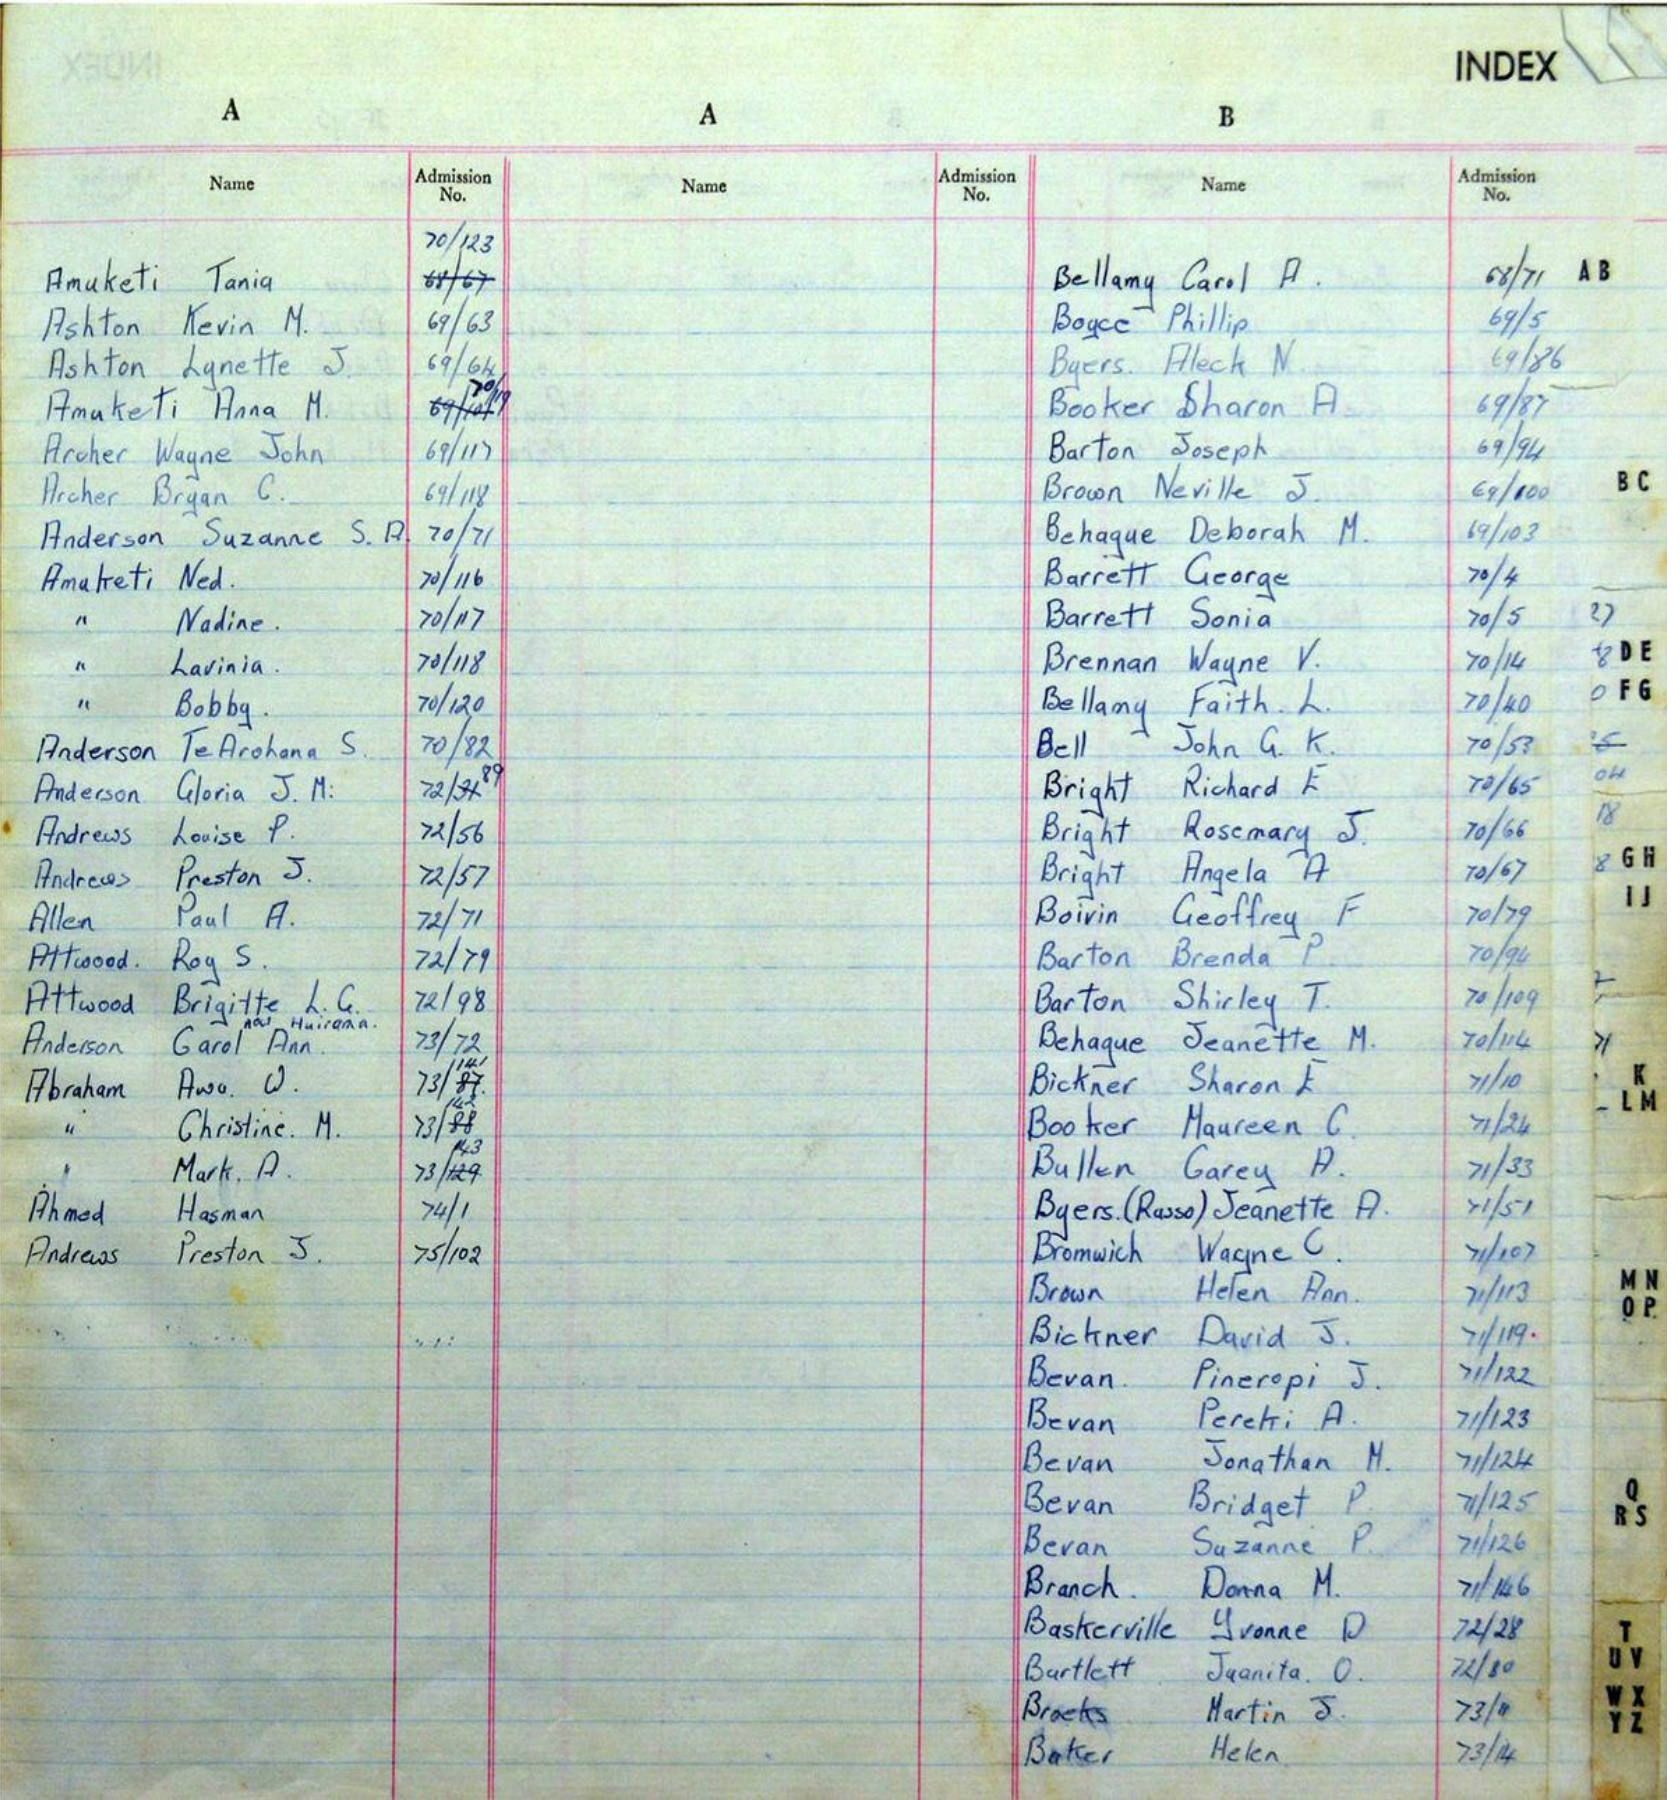 INDEX
A A B
Name Admission No. Name Admission No. Name Admission No.
70/123
Amuketi Tania 68/67
Ashton Kevin M. 69/63
Ashton Lynette J. 69/64
Amuketi Anna M. 69/107
Archer Wayne John 69/117
Archer Bryan C. 69/118
Anderson Suzanne S. A. 70/71
Amuketi Ned. 70/116
" Nadine. 70/117
" Lavinia. 70/118
" Bobby. 70/120
Anderson TeArohana S. 70/82
Anderson Gloria J. M. 72/31 89
Andrews Louise P. 72/56
Andrews Preston J. 72/57
Allen Paul A. 72/71
Attwood. Roy S. 72/79
Attwood Brigitte L. G. 72/98
now Huirama.
Anderson Carol Ann. 73/72
Abraham Awa. W. 73/87 141
" Christine. M. 73/88 142
" Mark. A. 73/129 143
Ahmed Hasman 74/1
Andrews Preston J. 75/102
Bellamy Carol A. 68/71
Boyce Phillip 69/5
Byers. Aleck N. 69/86
Booker Sharon A. 69/87
Barton Joseph 69/94
Brown Neville J. 69/100
Behague Deborah M. 69/103
Barrett George 70/4
Barrett Sonia 70/5
Brennan Wayne V. 70/14
Bellamy Faith. L. 70/40
Bell John G. K. 70/53
Bright Richard E 70/65
Bright Rosemary J. 70/66
Bright Angela A 70/67
Boivin Geoffrey F 70/79
Barton Brenda P. 70/94
Barton Shirley T. 70/109
Behague Jeanette M. 70/114
Bickner Sharon E 71/10
Booker Maureen C. 71/24
Bullen Garey A. 71/33
Byers. (Russo) Jeanette A. 71/51
Bromwich Wayne C. 71/107
Brown Helen Ann. 71/113
Bickner David J. 71/119.
Bevan. Pineropi J. 71/122
Bevan Pereki A. 71/123
Bevan Jonathan M. 71/124
Bevan Bridget P. 71/125
Bevan Suzanne P. 71/126
Branch. Donna M. 71/146
Baskerville Yvonne D 72/28
Bartlett Juanita. O. 72/80
Brooks Martin J. 73/11
Baker Helen 73/14
A B
B C
D E
F G
G H
I J
K
L M
M N
O P
Q
R S
T
U V
W X
Y Z